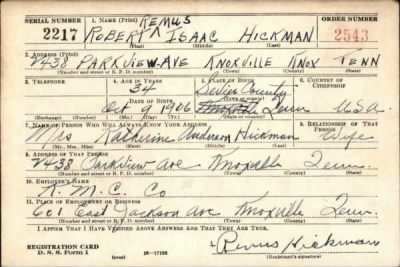 SERIAL NUMBER 1. NAME (Print) REMUS ORDER NUMBER
2217 ROBERT ISAAC HICKMAN 2543
(First) (Middle) (Last)
2. ADDRESS (Print)
2438 PARKVIEW AVE KNOXVILLE KNOX TENN
(Number and street or R. F. D. number) (Town) (County) (State)
3. TELEPHONE 4. AGE IN YEARS 5. PLACE OF BIRTH 6. COUNTRY OF CITIZENSHIP
34 Sevier County
DATE OF BIRTH
Oct 9 1906 Tenn U.S.A.
(Exchange) (Number) (Mo.) (Day) (Yr.) (State or country)
7. NAME OF PERSON WHO WILL ALWAYS KNOW YOUR ADDRESS 8. RELATIONSHIP OF THAT PERSON
Mrs Katherine Anderson Hickman Wife
(Mr., Mrs., Miss) (First) (Middle) (Last)
9. ADDRESS OF THAT PERSON
2438 Parkview Ave Knoxville Tenn.
(Number and street or R. F. D. number) (Town) (County) (State)
10. EMPLOYER'S NAME
K. M. C. Co
11. PLACE OF EMPLOYMENT OR BUSINESS
601 East Jackson Ave Knoxville Tenn.
(Number and street or R. F. D. number) (Town) (County) (State)
I AFFIRM THAT I HAVE VERIFIED ABOVE ANSWERS AND THAT THEY ARE TRUE.
REGISTRATION CARD
D. S. S. Form 1 16—17105 Remus Hickman
(Registrant's signature)